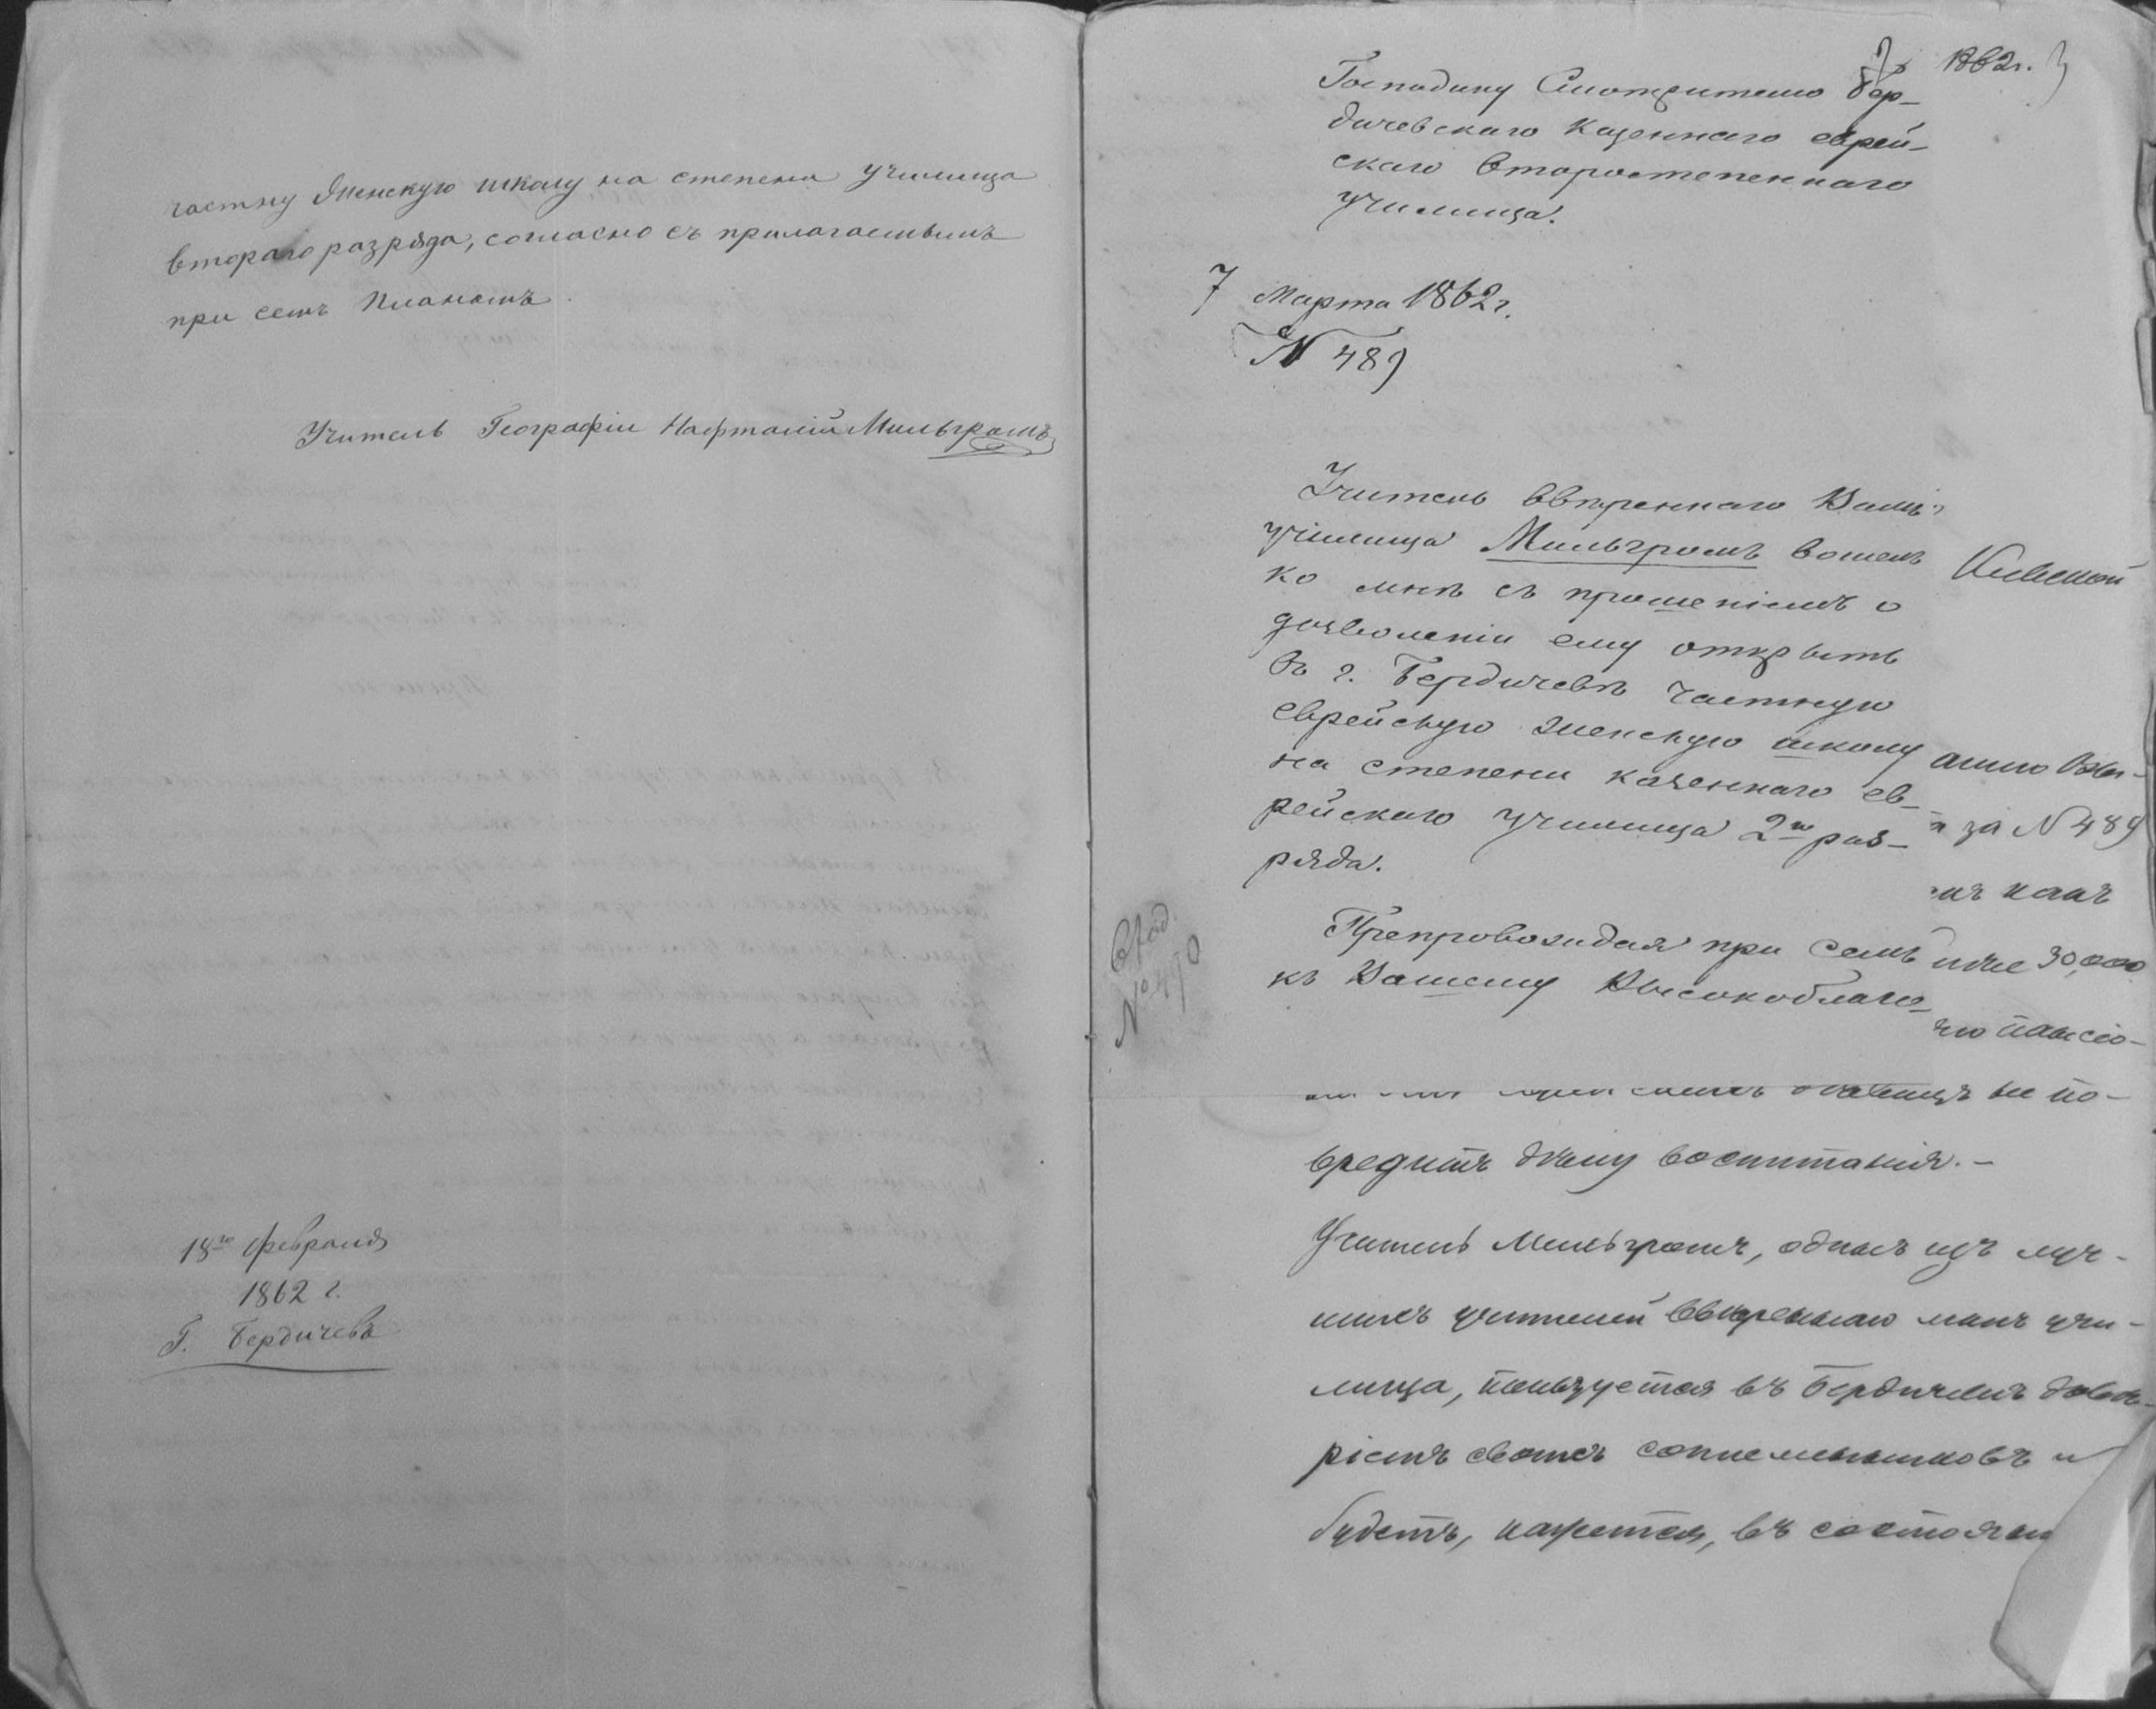 частну женскую школу на степени училища
втораго разряда, согласно съ прилагаемымъ
при семъ планомъ.
Учитель Географіи Нафталій Мильгромъ
18го февраля
1862 г.
Г. Бердичевъ
1862 г. 3
Господину Смотрителю Бер-
дичевскаго Казеннаго еврей-
скаго второстепеннаго
училища.
7 Марта 1862 г.
N 489
Учитель ввѣреннаго Вамъ
училища Мильгромъ вошелъ
ко мнѣ съ прошеніемъ о
дозволеніи ему открыть
въ г. Бердичевѣ частную
еврейскую женскую школу
на степени казеннаго ев-
рейскаго училища 2го раз-
ряда.
Препровождая при семъ
къ Вашему Высокоблаго-
за N 489
30,000
вход.
№ 490
не по-
вредитъ дѣлу воспитанія. -
Учитель Мильгромъ, одинъ изъ луч-
шихъ учителей ввѣреннаго мнѣ учи-
лища, пользуется въ Бердичевѣ довѣ-
ріемъ своихъ соплеменниковъ и
будетъ, кажется, въ состояніи